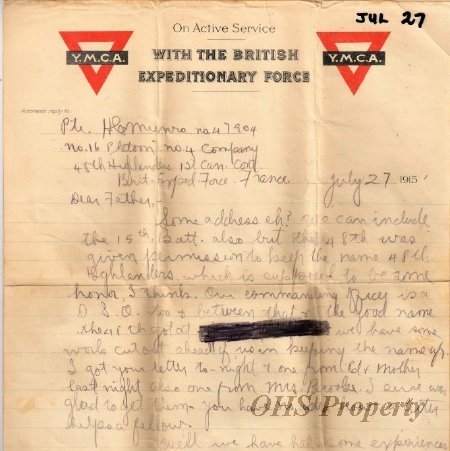 JUL 27
On Active Service
Y.M.C.A.
WITH THE BRITISH
EXPEDITIONARY FORCE
Y.M.C.A.
Address reply to:
Pte. no. 47904
No. 16 Platoon no 4 Company
48th Highlanders 1st Can. Cont.
Brit. Exped. Force. France
July 27 1915
Dear Father,-
Some address eh? We can include
the 15th Batt. also but the 48th was
given permission to keep the name 48th
Highlanders which is supposed to be some
honor, I think. Our commanding officer is a
D.S.O. too & between that & the good name
the 48th got at we have some
work cut out ahead of us in keeping the name up.
I got your letter to-night & one from Ed & Mother
last night also one from Mrs I sure was
glad to get them. you have no letter
helps a fellow.
Well we have had some experiences
OHS Property